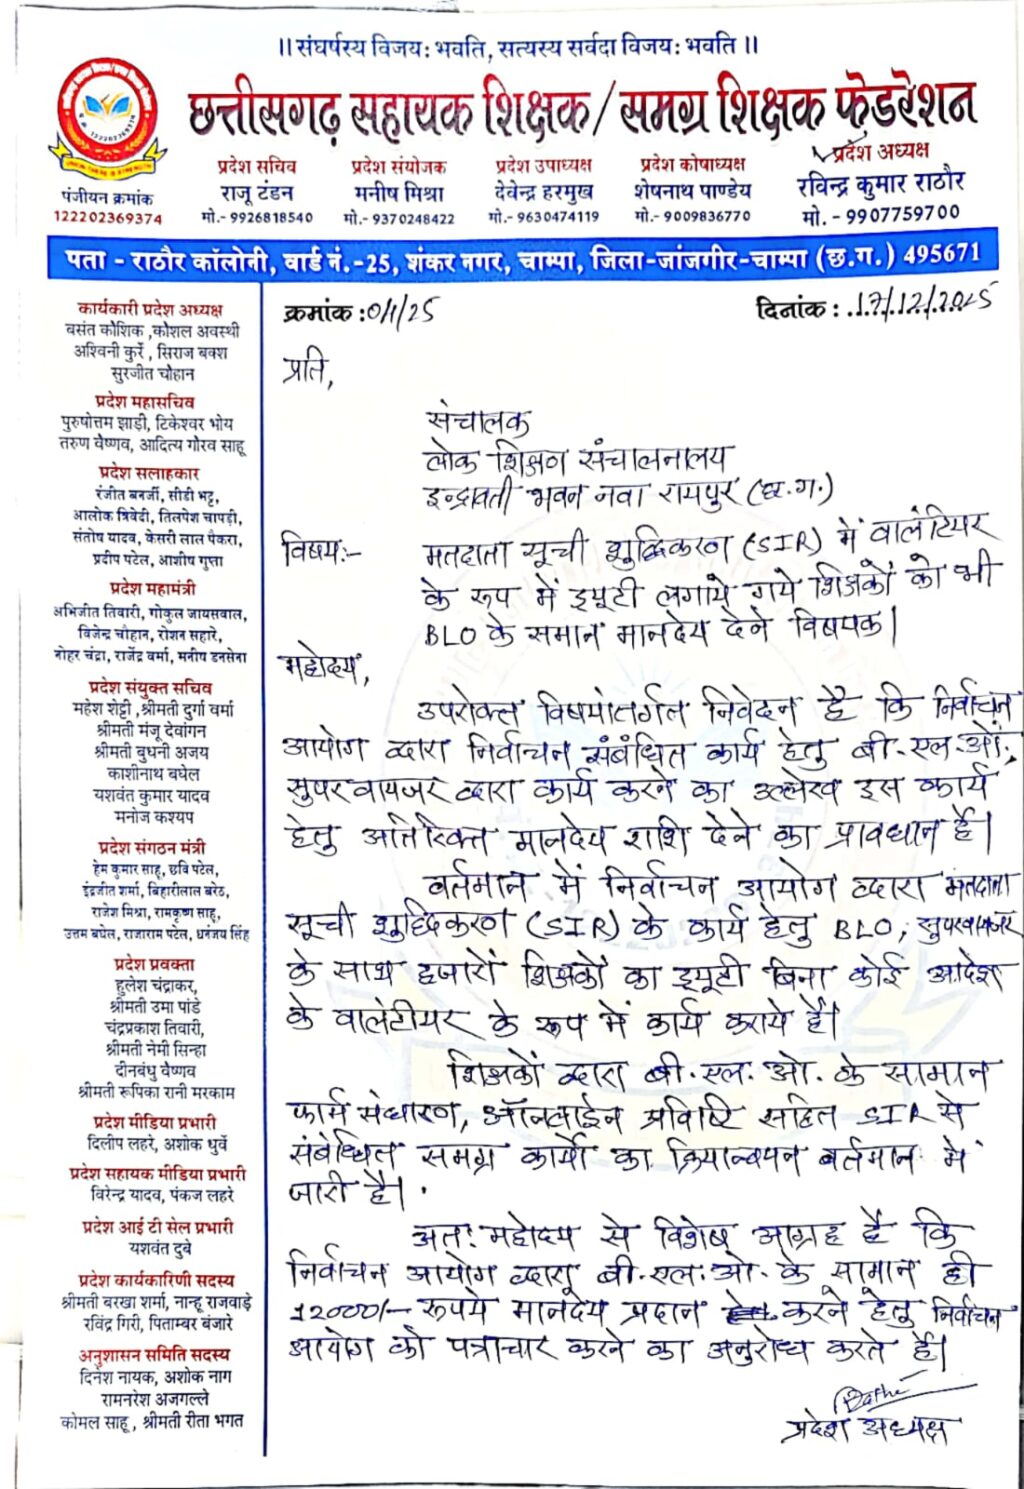 ।। संघर्षस्य विजय: भवति, सत्यस्य सर्वदा विजय: भवति ।।
छत्तीसगढ़ सहायक शिक्षक/समग्र शिक्षक फेडरेशन
पंजीयन क्रमांक
122202369374
प्रदेश सचिव
राजू टंडन
मो.- 9926818540
प्रदेश संयोजक
मनीष मिश्रा
मो.- 9370248422
प्रदेश उपाध्यक्ष
देवेन्द्र हरमुख
मो.- 9630474119
प्रदेश कोषाध्यक्ष
शेषनाथ पाण्डेय
मो.- 9009836770
प्रदेश अध्यक्ष
रविन्द्र कुमार राठौर
मो. - 9907759700
पता - राठौर कॉलोनी, वार्ड नं.-25, शंकर नगर, चाम्पा, जिला-जांजगीर-चाम्पा (छ.ग.) 495671
कार्यकारी प्रदेश अध्यक्ष
बसंत कौशिक ,कौशल अवस्थी
अश्विनी कुर्रे , सिराज बक्श
सुरजीत चौहान
प्रदेश महासचिव
पुरुषोत्तम झाड़ी, टिकेश्वर भोय
तरुण वैष्णव, आदित्य गौरव साहू
प्रदेश सलाहकार
रंजीत बनर्जी, सीडी भट्ट,
आलोक त्रिवेदी, तिलपेश चापड़ी,
संतोष यादव, केसरी लाल पैकरा,
प्रदीप पटेल, आशीष गुप्ता
प्रदेश महामंत्री
अभिजीत तिवारी, गोकुल जायसवाल,
विजेन्द्र चौहान, रोशन सहारे,
नोहर चंद्रा, राजेंद्र वर्मा, मनीष डनसेना
प्रदेश संयुक्त सचिव
महेश शेट्टी ,श्रीमती दुर्गा वर्मा
श्रीमती मंजू देवांगन
श्रीमती बुधनी अजय
काशीनाथ बघेल
यशवंत कुमार यादव
मनोज कश्यप
प्रदेश संगठन मंत्री
हेम कुमार साहू, छवि पटेल,
इंद्रजीत शर्मा, बिहारीलाल बरेठ,
राजेश मिश्रा, रामकृष्ण साहू,
उत्तम बघेल, राजाराम पटेल, धनंजय सिंह
प्रदेश प्रवक्ता
हुलेश चंद्राकर,
श्रीमती उमा पांडे
चंद्रप्रकाश तिवारी,
श्रीमती नेमी सिन्हा
दीनबंधु वैष्णव
श्रीमती रूपिका रानी मरकाम
प्रदेश मीडिया प्रभारी
दिलीप लहरे, अशोक धुर्वे
प्रदेश सहायक मीडिया प्रभारी
विरेन्द्र यादव, पंकज लहरे
प्रदेश आई टी सेल प्रभारी
यशवंत दुबे
प्रदेश कार्यकारिणी सदस्य
श्रीमती बरखा शर्मा, नान्हू राजवाड़े
रविंद्र गिरी, पिताम्बर बंजारे
अनुशासन समिति सदस्य
दिनेश नायक, अशोक नाग
रामनरेश अजगल्ले
कोमल साहू , श्रीमती रीता भगत
क्रमांक : 01/25
दिनांक : 17/12/2025
प्रति,
संचालक
लोक शिक्षण संचालनालय
इन्द्रावती भवन नवा रायपुर (छ.ग.)
विषय:- मतदाता सूची शुद्धिकरण (SIR) में वालंटियर
के रूप में ड्यूटी लगाये गये शिक्षकों को भी
BLO के समान मानदेय देने विषयक।
महोदय,
उपरोक्त विषयांतर्गत निवेदन है कि निर्वाचन
आयोग द्वारा निर्वाचन संबंधित कार्य हेतु बी.एल.ओ.,
सुपरवायजर द्वारा कार्य करने का उल्लेख इस कार्य
हेतु अतिरिक्त मानदेय राशि देने का प्रावधान है।
वर्तमान में निर्वाचन आयोग द्वारा मतदाता
सूची शुद्धिकरण (SIR) के कार्य हेतु BLO, सुपरवायजर
के साथ हजारों शिक्षकों का ड्यूटी बिना कोई आदेश
के वालंटीयर के रूप में कार्य कराये हैं।
शिक्षकों द्वारा बी.एल.ओ. के सामान
फार्म संधारण, ऑनलाईन प्रविष्टि सहित SIR से
संबंधित समग्र कार्यों का क्रियान्वयन वर्तमान में
जारी है।
अतः महोदय से विशेष आग्रह है कि
निर्वाचन आयोग द्वारा बी.एल.ओ. के सामान ही
12000/- रूपये मानदेय प्रदान करने हेतु निर्वाचन
आयोग को पत्राचार करने का अनुरोध करते हैं।
प्रदेश अध्यक्ष